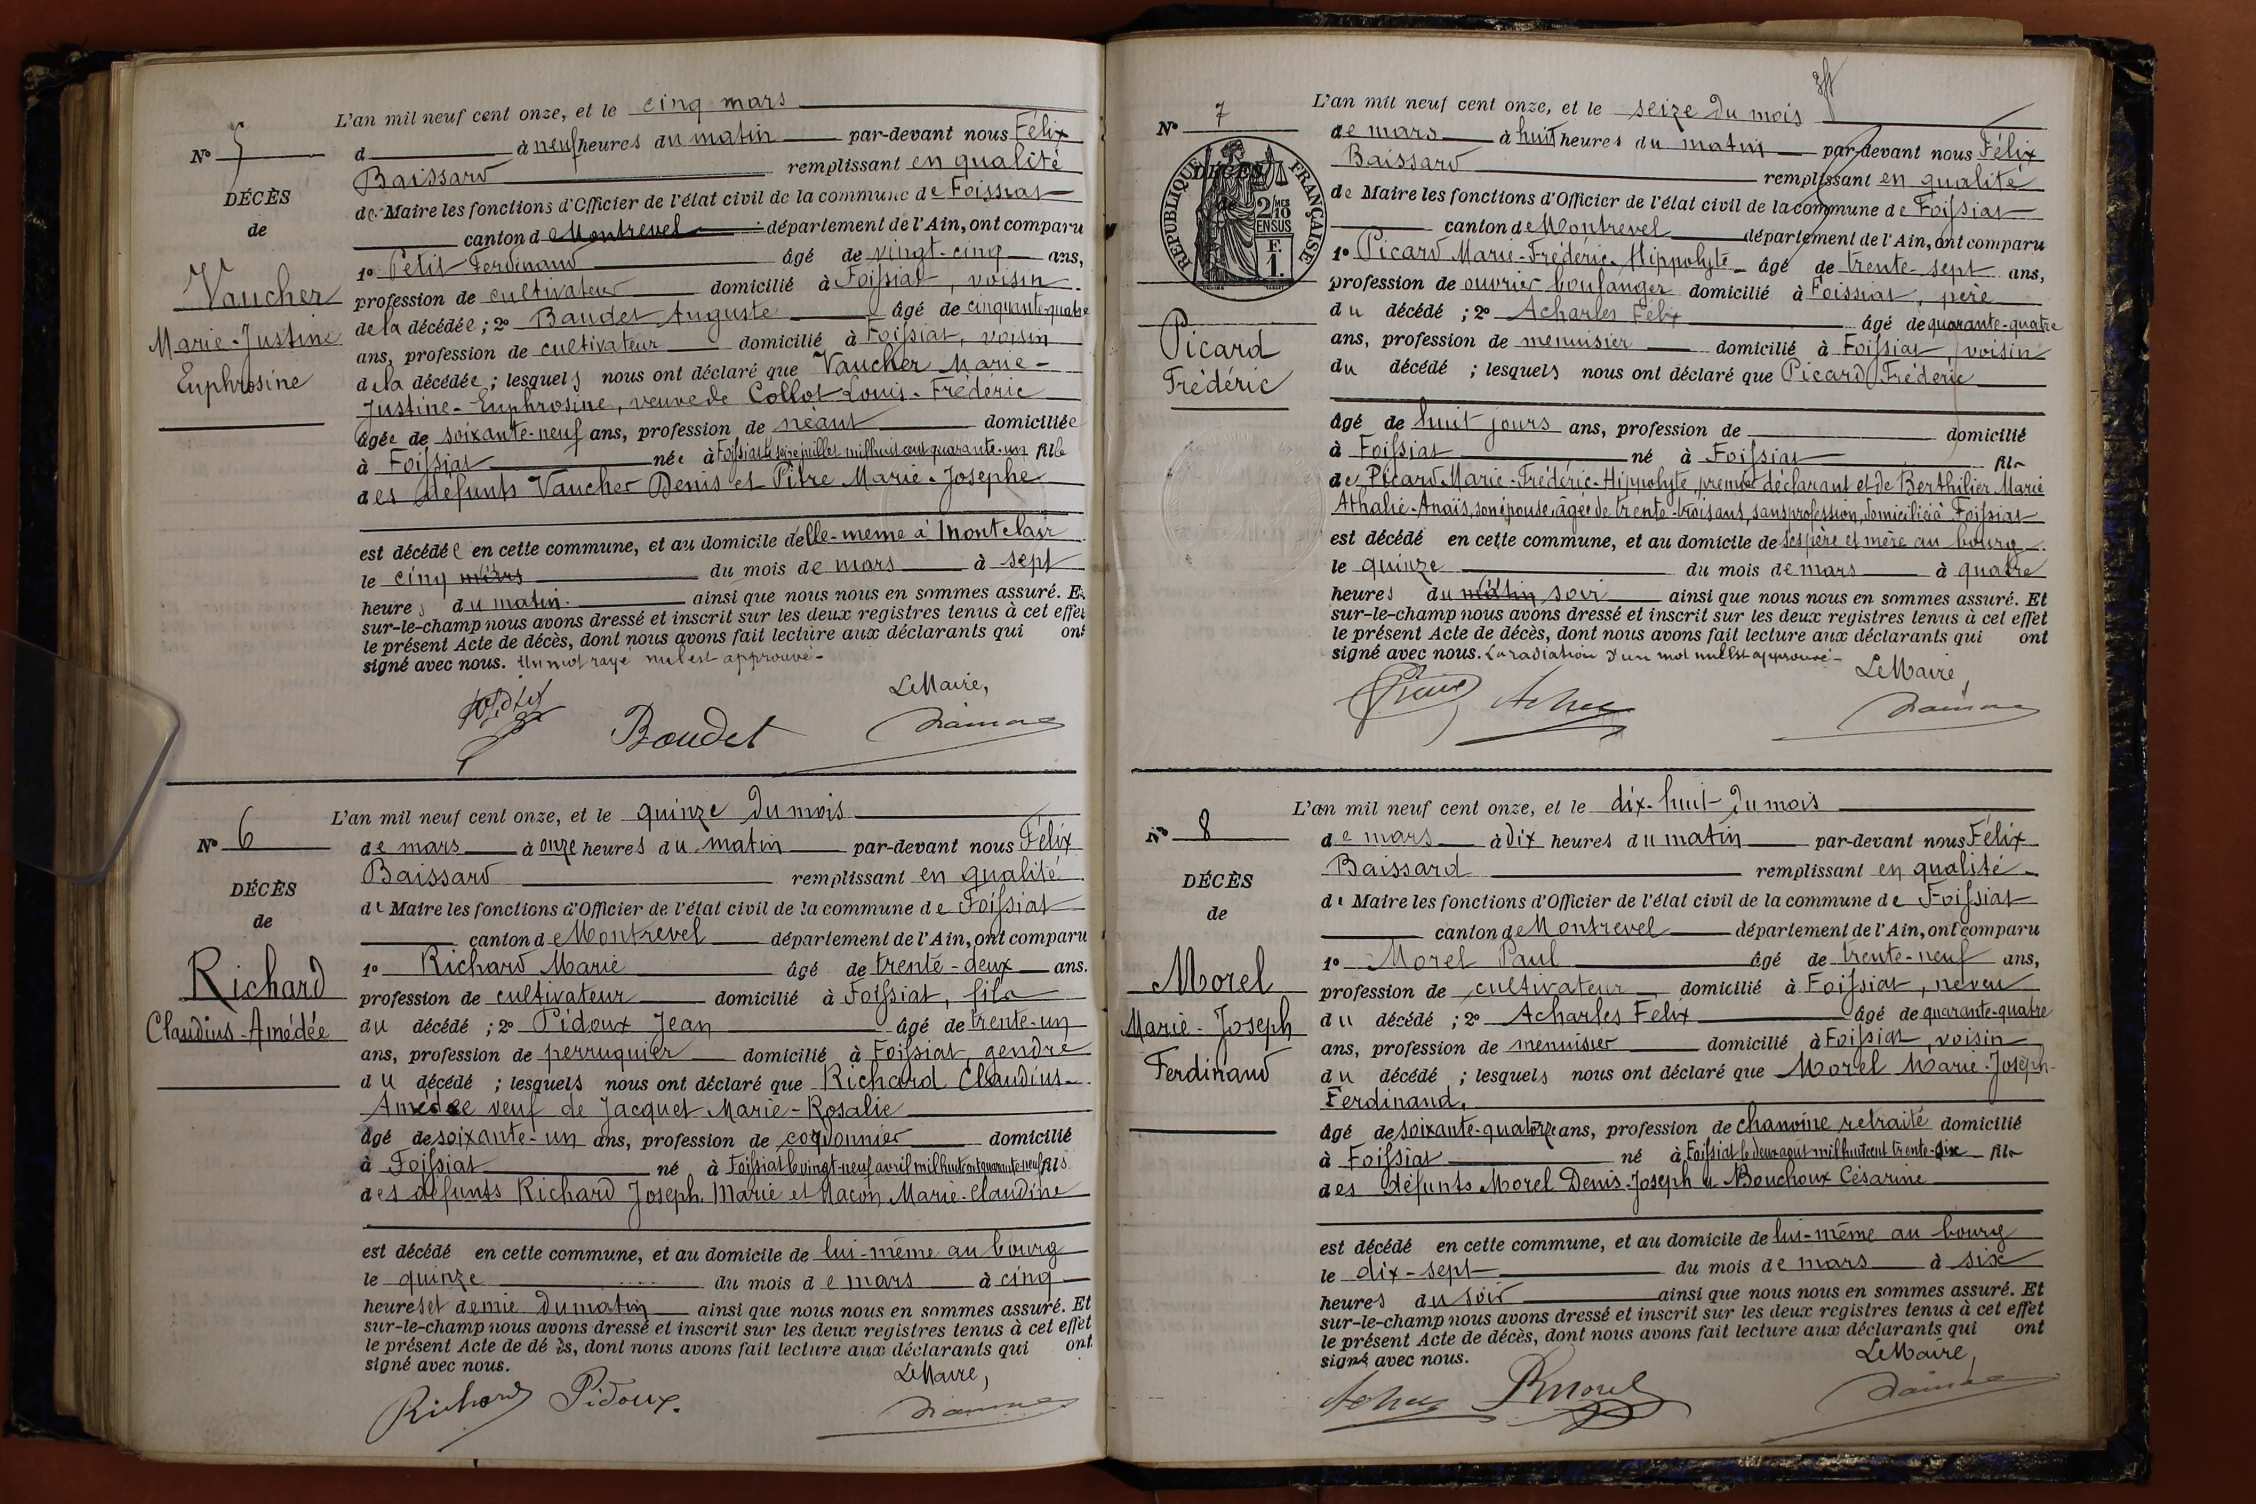 N° 5
DÉCÈS
de
Vaucher
Marie-Justine
Euphrosine
L'an mil neuf cent onze, et le cinq mars
d à neuf heures du matin par-devant nous Félix
Baissard remplissant en qualité
de Maire les fonctions d'Officier de l'état civil de la commune de Foissiat
canton de Montrevel département de l'Ain, ont comparu
1° Petit Ferdinand âgé de vingt-cinq ans,
profession de cultivateur domicilié à Foissiat, voisin
de la décédée ; 2° Baudet Auguste âgé de cinquante-quatre
ans, profession de cultivateur domicilié à Foissiat, voisin
de la décédée ; lesquels nous ont déclaré que Vaucher Marie-
Justine-Euphrosine, veuve de Collot Louis-Frédéric
âgée de soixante-neuf ans, profession de néant domiciliée
à Foissiat née à Foissiat le seize juillet mil huit cent quarante-un fille
des défunts Vaucher Denis et Pitre Marie-Josephe
est décédée en cette commune, et au domicile d'elle-même à Montclair
le cinq mars du mois de mars à sept
heures du matin. ainsi que nous nous en sommes assuré. Et
sur-le-champ nous avons dressé et inscrit sur les deux registres tenus à cet effet
le présent Acte de décès, dont nous avons fait lecture aux déclarants qui ont
signé avec nous. Un mot rayé nul est approuvé-
Le Maire,
Boudet
N° 6
DÉCÈS
de
Richard
Claudius-Amédée
L'an mil neuf cent onze, et le quinze du mois
de mars à onze heures du matin par-devant nous Félix
Baissard remplissant en qualité
de Maire les fonctions d'Officier de l'état civil de la commune de Foissiat
canton de Montrevel département de l'Ain, ont comparu
1° Richard Marie âgé de trente-deux ans.
profession de cultivateur domicilié à Foissiat, fils
du décédé ; 2° Pidoux Jean âgé de trente-un
ans, profession de perruquier domicilié à Foissiat, gendre
du décédé ; lesquels nous ont déclaré que Richard Claudius-
Amédée veuf de Jacquet Marie-Rosalie
âgé de soixante-un ans, profession de cordonnier domicilié
à Foissiat né à Foissiat le vingt-neuf avril mil huit cent quarante-neuf fils
des défunts Richard Joseph Marie et Nacon Marie-Claudine
est décédé en cette commune, et au domicile de lui-même au bourg
le quinze du mois de mars à cinq
heures et demie du matin ainsi que nous nous en sommes assuré. Et
sur-le-champ nous avons dressé et inscrit sur les deux registres tenus à cet effet
le présent Acte de dé ès, dont nous avons fait lecture aux déclarants qui ont
signé avec nous.
Le Maire,
Richard Pidoux.
N° 7
RÉPUBLIQUE FRANÇAISE
DÉCÈS
de
2/10 MES
EN SUS
F.
1.
Picard
Frédéric
L'an mil neuf cent onze, et le seize du mois
de mars à huit heures du matin par-devant nous Félix
Baissard remplissant en qualité
de Maire les fonctions d'Officier de l'état civil de la commune de Foissiat
canton de Montrevel département de l'Ain, ont comparu
1° Picard Marie-Frédéric-Hippolyte âgé de trente-sept ans,
profession de ouvrier boulanger domicilié à Foissiat, père
du décédé ; 2° Acharles Félix âgé de quarante-quatre
ans, profession de menuisier domicilié à Foissiat, voisin
du décédé ; lesquels nous ont déclaré que Picard Frédéric
âgé de huit jours ans, profession de domicilié
à Foissiat né à Foissiat fils
de Picard Marie-Frédéric-Hippolyte, premier déclarant et de Berthilier Marie
Athalie-Anaïs, son épouse, âgée de trente-trois ans, sans profession, domiciliée à Foissiat
est décédé en cette commune, et au domicile de ses père et mère au bourg
le quinze du mois de mars à quatre
heures du matin soir ainsi que nous nous en sommes assuré. Et
sur-le-champ nous avons dressé et inscrit sur les deux registres tenus à cet effet
le présent Acte de décès, dont nous avons fait lecture aux déclarants qui ont
signé avec nous. La radiation d'un mot nul est approuvé-
Le Maire,
N° 8
DÉCÈS
de
Morel
Marie-Joseph
Ferdinand
L'an mil neuf cent onze, et le dix-huit du mois
de mars à dix heures du matin par-devant nous Félix
Baissard remplissant en qualité
de Maire les fonctions d'Officier de l'état civil de la commune de Foissiat
canton de Montrevel département de l'Ain, ont comparu
1° Morel Paul âgé de trente-neuf ans,
profession de cultivateur domicilié à Foissiat, neveu
du décédé ; 2° Acharles Félix âgé de quarante-quatre
ans, profession de menuisier domicilié à Foissiat, voisin
du décédé ; lesquels nous ont déclaré que Morel Marie-Joseph-
Ferdinand,
âgé de soixante-quatorze ans, profession de chanoine retraité domicilié
à Foissiat né à Foissiat le deux août mil huit cent trente-six fils
des défunts Morel Denis-Joseph et Bouchoux Césarine
est décédé en cette commune, et au domicile de lui-même au bourg
le dix-sept du mois de mars à six
heures du soir ainsi que nous nous en sommes assuré. Et
sur-le-champ nous avons dressé et inscrit sur les deux registres tenus à cet effet
le présent Acte de décès, dont nous avons fait lecture aux déclarants qui ont
signé avec nous.
Le Maire,